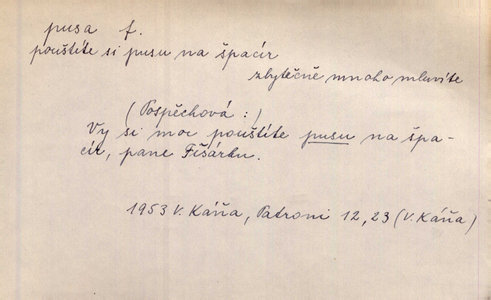 pusa f.
pouštíte si pusu na špacír
zbytečně mnoho mluvíte
(Pospěchová:)
Vy si moc pouštíte pusu na špa-
cír, pane Fišárku.
1953 V. Káňa, Patroni 12, 23 (V. Káňa)